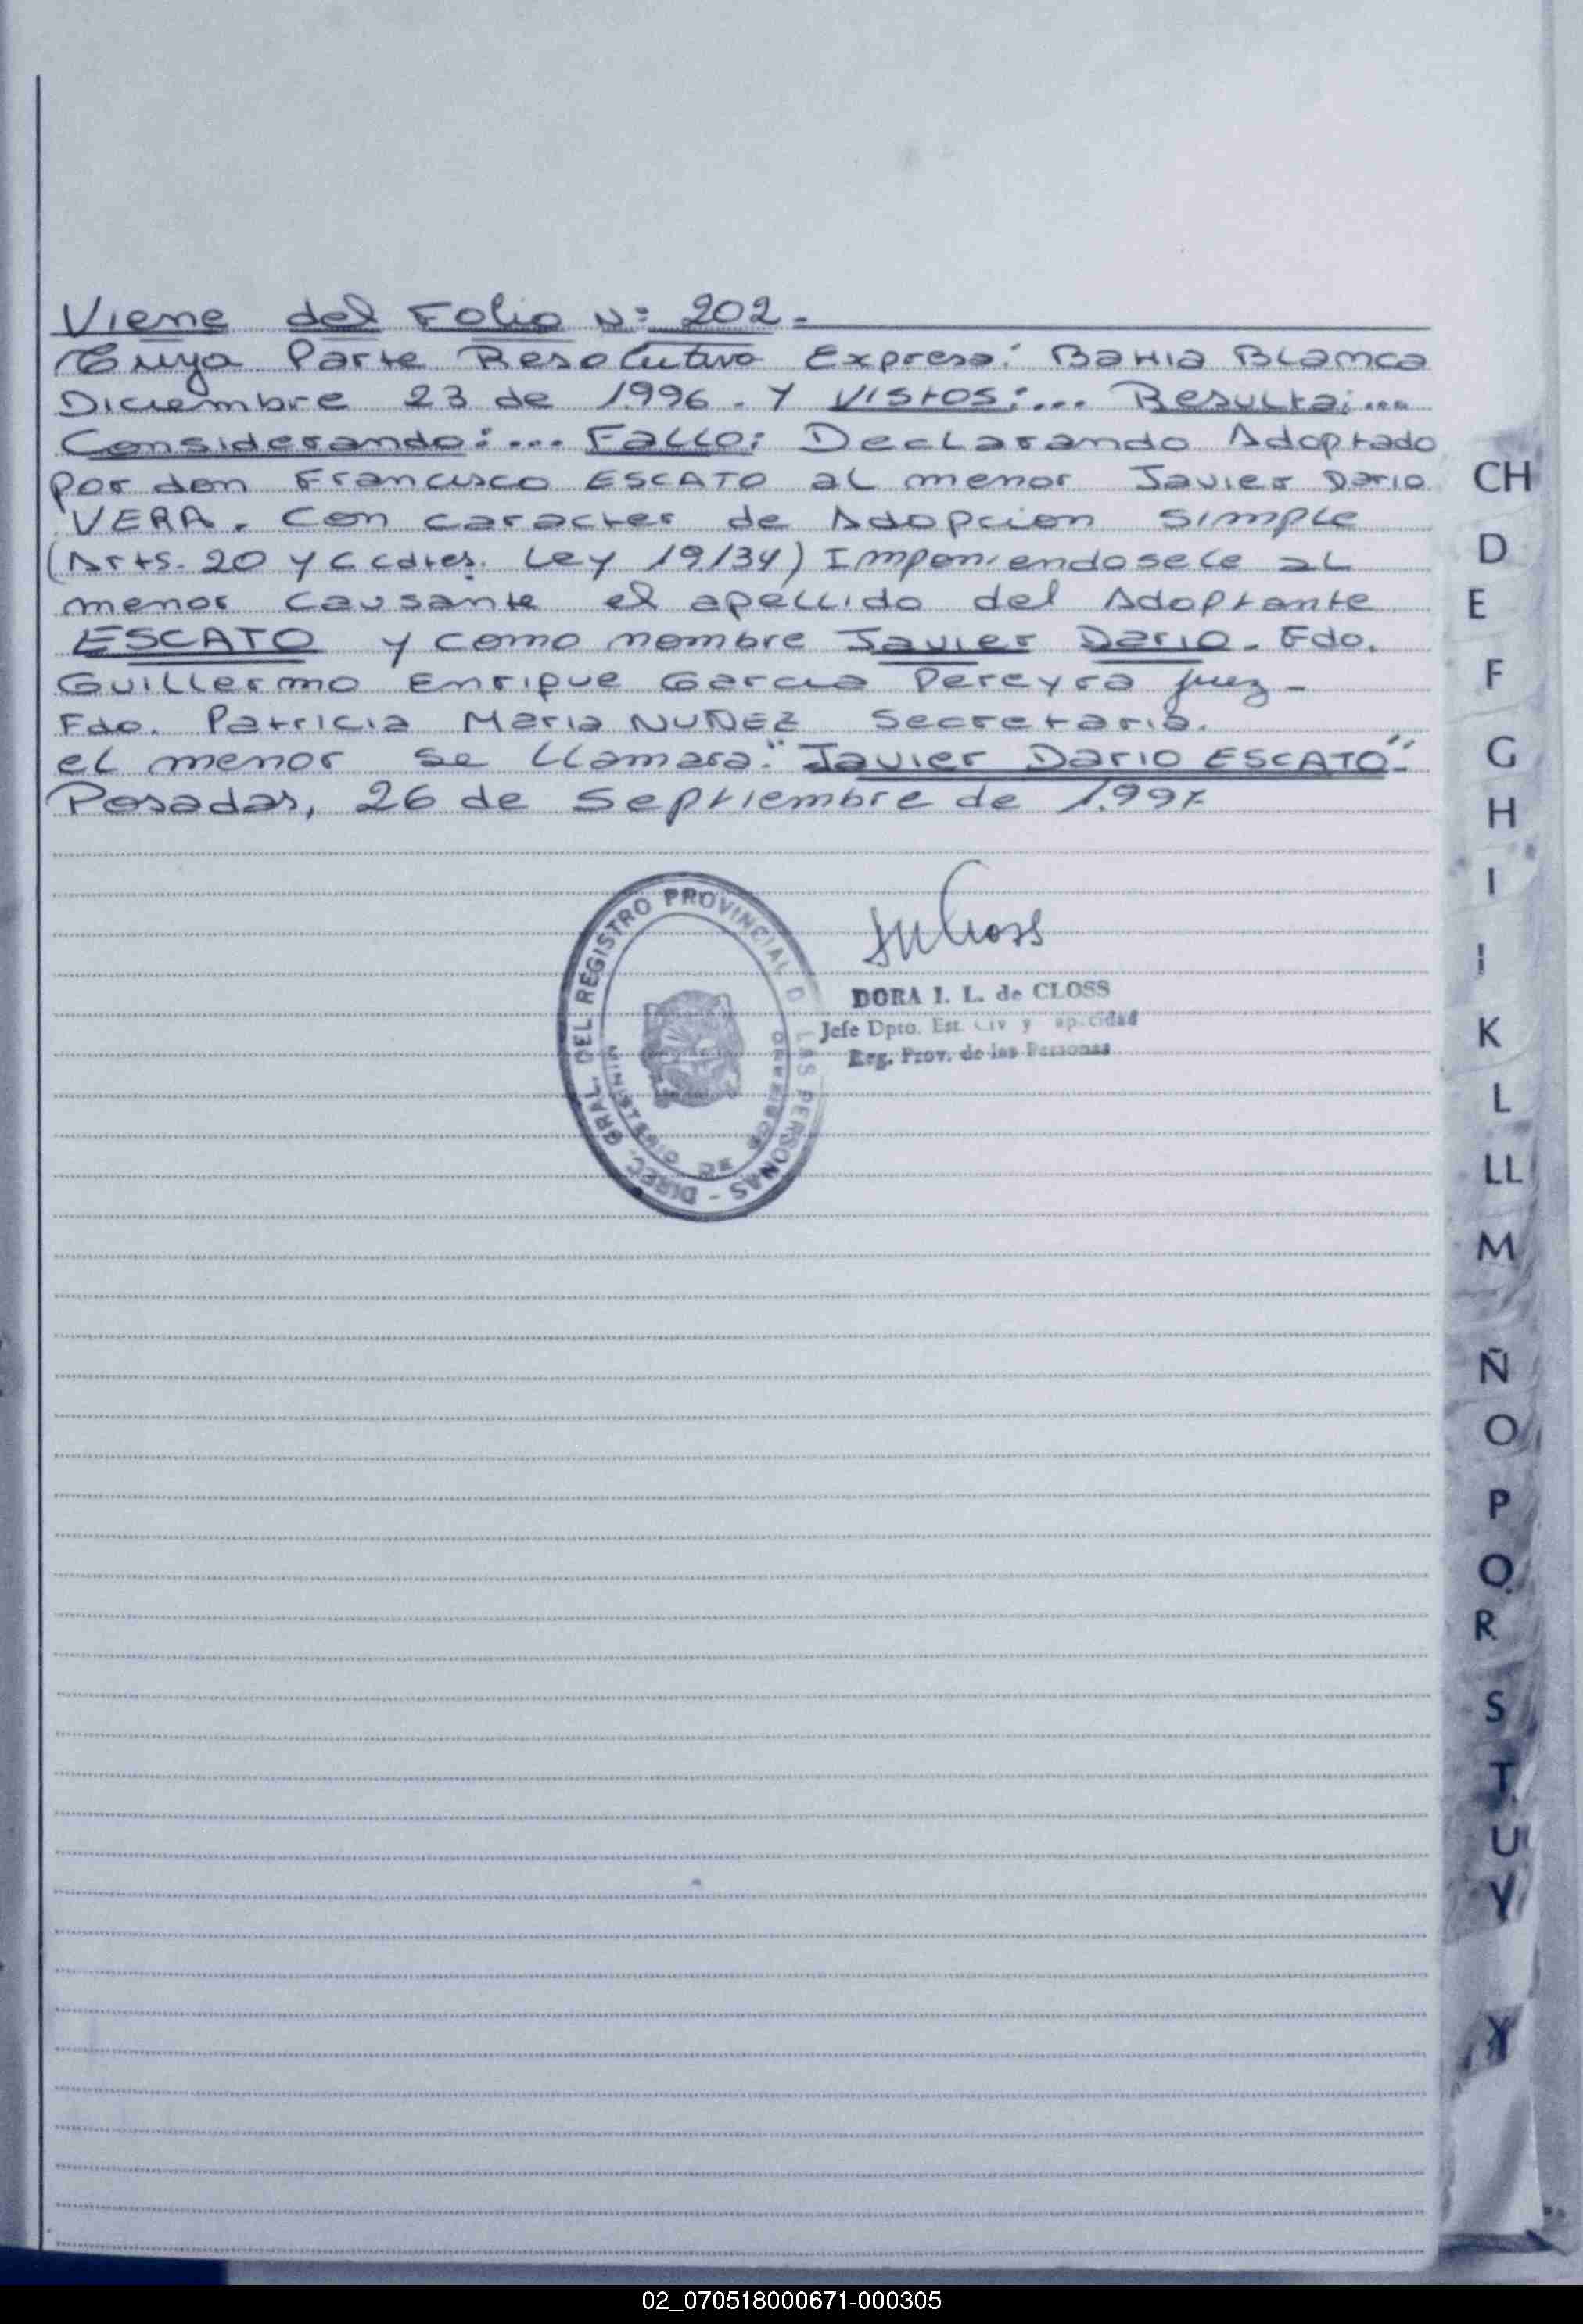 Viene del Folio Nº 202.-
Cuya Parte Resolutiva Expresa: Bahia Blanca
Diciembre 23 de 1.996. Y Vistos:... Resulta:...
Considerando:... Fallo: Declarando Adoptado
por don Francisco ESCATO al menor Javier Dario
VERA. Con caracter de Adopcion Simple
(Arts. 20 y Ccdtes. Ley 19134) Imponiendosele al
menor causante el apellido del Adoptante
ESCATO y como nombre Javier Dario. Fdo.
Guillermo Enrique Garcia Pereyra juez-
Fdo. Patricia Maria NUÑEZ Secretaria.
el menor se llamara: "Javier Dario ESCATO".-
Posadas, 26 de Septiembre de 1.997
DIREC. GRAL. DEL REGISTRO PROVINCIAL D LAS PERSONAS -
MINISTERIO DE GOBIERNO
DORA I. L. de CLOSS
Jefe Dpto. Est. Civ y apacidad
Reg. Prov. de las Personas
CH
D
E
F
G
H
I
I
K
L
LL
M
Ñ
O
P
Q
R
S
T
U
Y
Y
02_070518000671-000305